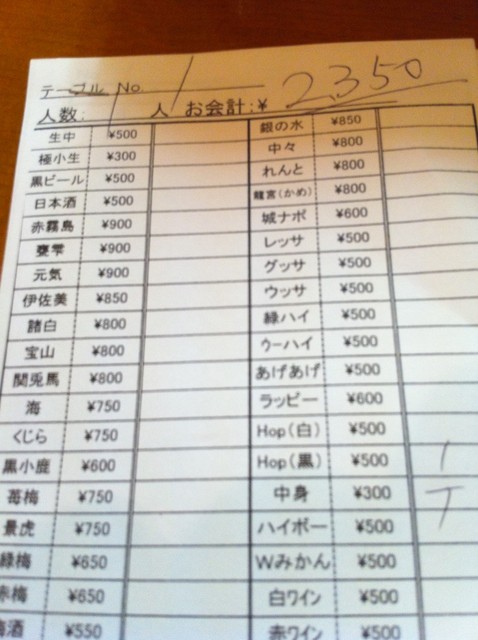 テーブル No. 1
人数: 1 人 お会計:¥ 2,350
生中 ¥500 銀の水 ¥850
極小生 ¥300 中々 ¥800
黒ビール ¥500 れんと ¥800
日本酒 ¥500 龍宮(かめ) ¥800
赤霧島 ¥900 城ナポ ¥600
甕雫 ¥900 レッサ ¥500
元気 ¥900 グッサ ¥500
伊佐美 ¥850 ウッサ ¥500
諸白 ¥800 緑ハイ ¥500
宝山 ¥800 ウーハイ ¥500
関兎馬 ¥800 あげあげ ¥500
海 ¥750 ラッピー ¥600
くじら ¥750 Hop(白) ¥500
黒小鹿 ¥600 Hop(黒) ¥500 一
苺梅 ¥750 中身 ¥300 T
景虎 ¥750 ハイボー ¥500
緑梅 ¥650 Wみかん ¥500
赤梅 ¥650 白ワイン ¥500
梅酒 ¥550 赤ワイン ¥500